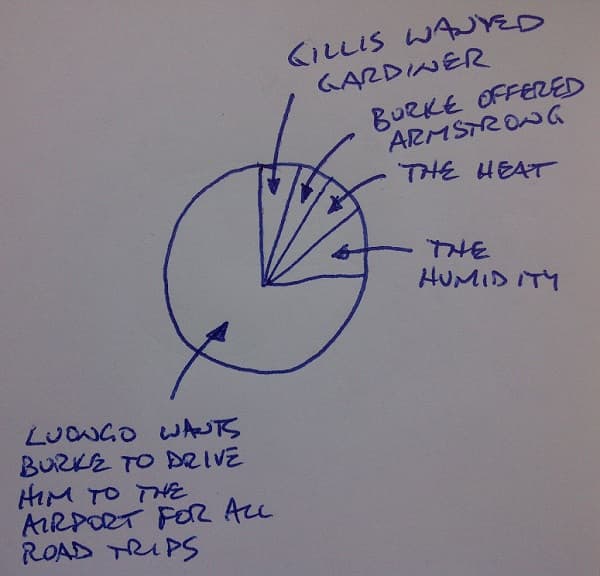 GILLIS WANTED
GARDINER
BURKE OFFERED
ARMSTRONG
THE HEAT
THE
HUMIDITY
LUONGO WANTS
BURKE TO DRIVE
HIM TO THE
AIRPORT FOR ALL
ROAD TRIPS